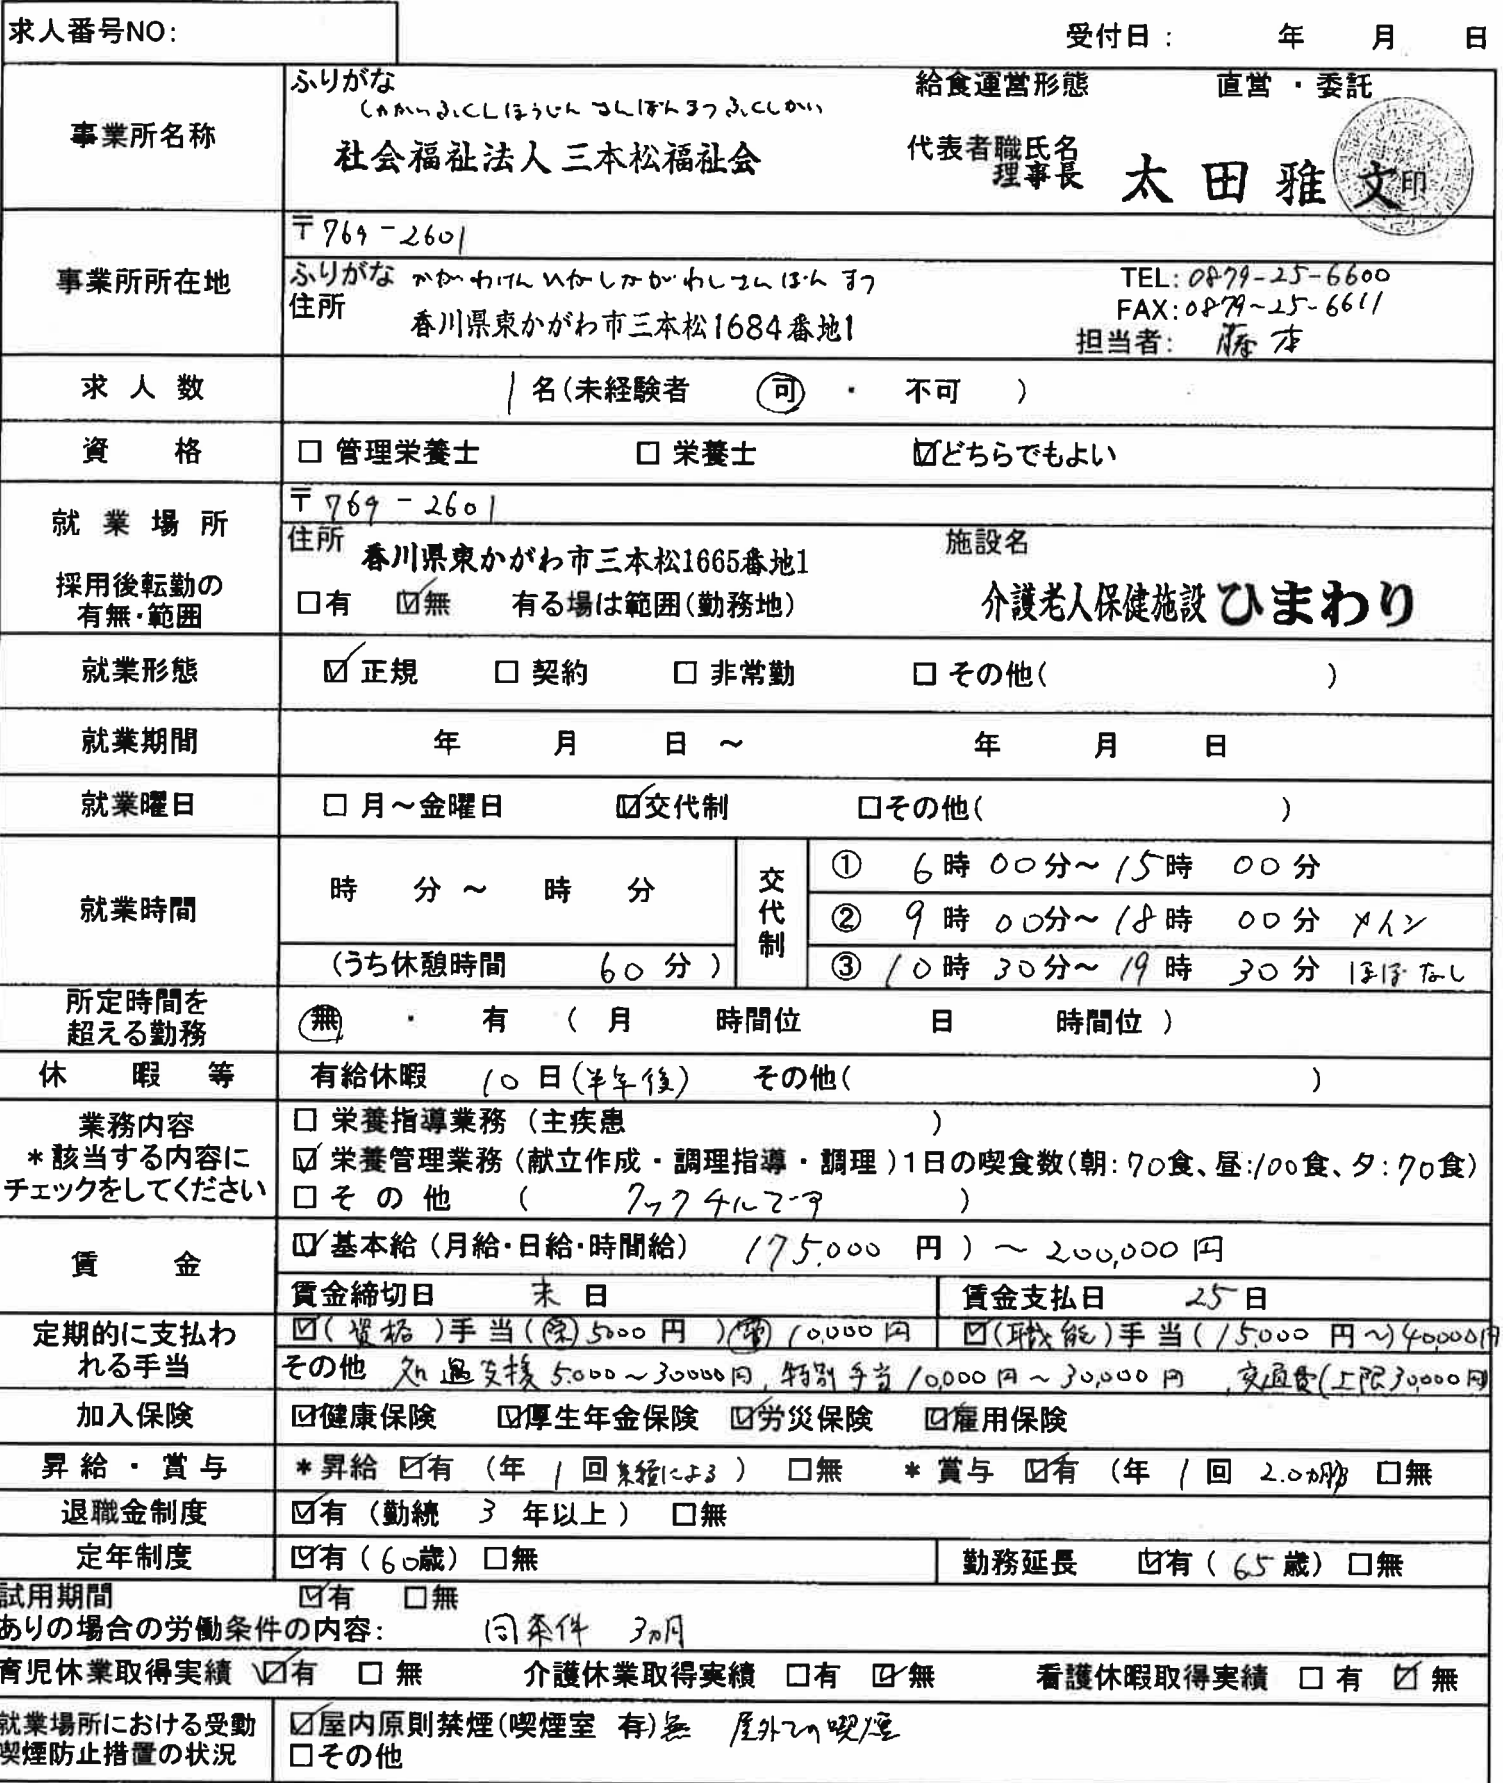 求人番号NO:
受付日: 年 月 日
事業所名称
ふりがな 給食運営形態 直営 ・ 委託
しゃかいふくしほうじん さんぼんまつふくしかい
社会福祉法人 三本松福祉会
代表者職氏名
理事長 太田雅文 印
事業所所在地
〒769-2601
ふりがな かがわけんひがしかがわしさんぼんまつ
住所 香川県東かがわ市三本松1684番地1
TEL:0879-25-6600
FAX:0879-25-6611
担当者: 藤本
求人数 1名(未経験者 可 ・ 不可 )
資格 □ 管理栄養士 □ 栄養士 ☑どちらでもよい
就業場所
〒769-2601
住所 香川県東かがわ市三本松1665番地1
施設名
介護老人保健施設 ひまわり
採用後転勤の
有無・範囲
□有 ☑無 有る場は範囲(勤務地)
就業形態 ☑ 正規 □ 契約 □ 非常勤 □ その他( )
就業期間 年 月 日 ~ 年 月 日
就業曜日 □ 月~金曜日 ☑交代制 □その他( )
就業時間
時 分 ~ 時 分
(うち休憩時間 60 分 )
交代制
① 6時 00分~15時 00分
② 9時 00分~18時 00分 メイン
③ 10時 30分~19時 30分 ほぼなし
所定時間を
超える勤務
無 ・ 有 ( 月 時間位 日 時間位 )
休暇等 有給休暇 10日(半年後) その他( )
業務内容
*該当する内容に
チェックをしてください
□ 栄養指導業務 (主疾患 )
☑ 栄養管理業務 (献立作成・調理指導・調理)1日の喫食数(朝:70食、昼:100食、夕:70食)
□ その他 ( クックチルです )
賃金 ☑基本給 (月給・日給・時間給) 175,000 円 ) ~ 200,000円
賃金締切日 末日 賃金支払日 25日
定期的に支払わ
れる手当
☑( 資格 )手当(栄)5000円 )管10,000円 ☑(職能)手当(15,000 円~)40,000円
その他 処遇支援 5,000~30000円, 特別手当10,000円~30,000円, 交通費(上限30,000円
加入保険 ☑健康保険 ☑厚生年金保険 ☑労災保険 ☑雇用保険
昇給・賞与 *昇給 ☑有 (年 1 回 業績による) □無 *賞与 ☑有 (年 1 回 2.0か月分 □無
退職金制度 ☑有 (勤続 3 年以上) □無
定年制度 ☑有 (60歳) □無 勤務延長 ☑有 ( 65歳) □無
試用期間 ☑有 □無
ありの場合の労働条件の内容: 同条件 3ヵ月
育児休業取得実績 ☑有 □ 無 介護休業取得実績 □有 ☑無 看護休暇取得実績 □ 有 ☑ 無
就業場所における受動
喫煙防止措置の状況
☑屋内原則禁煙(喫煙室 有)無 屋外での喫煙
□その他